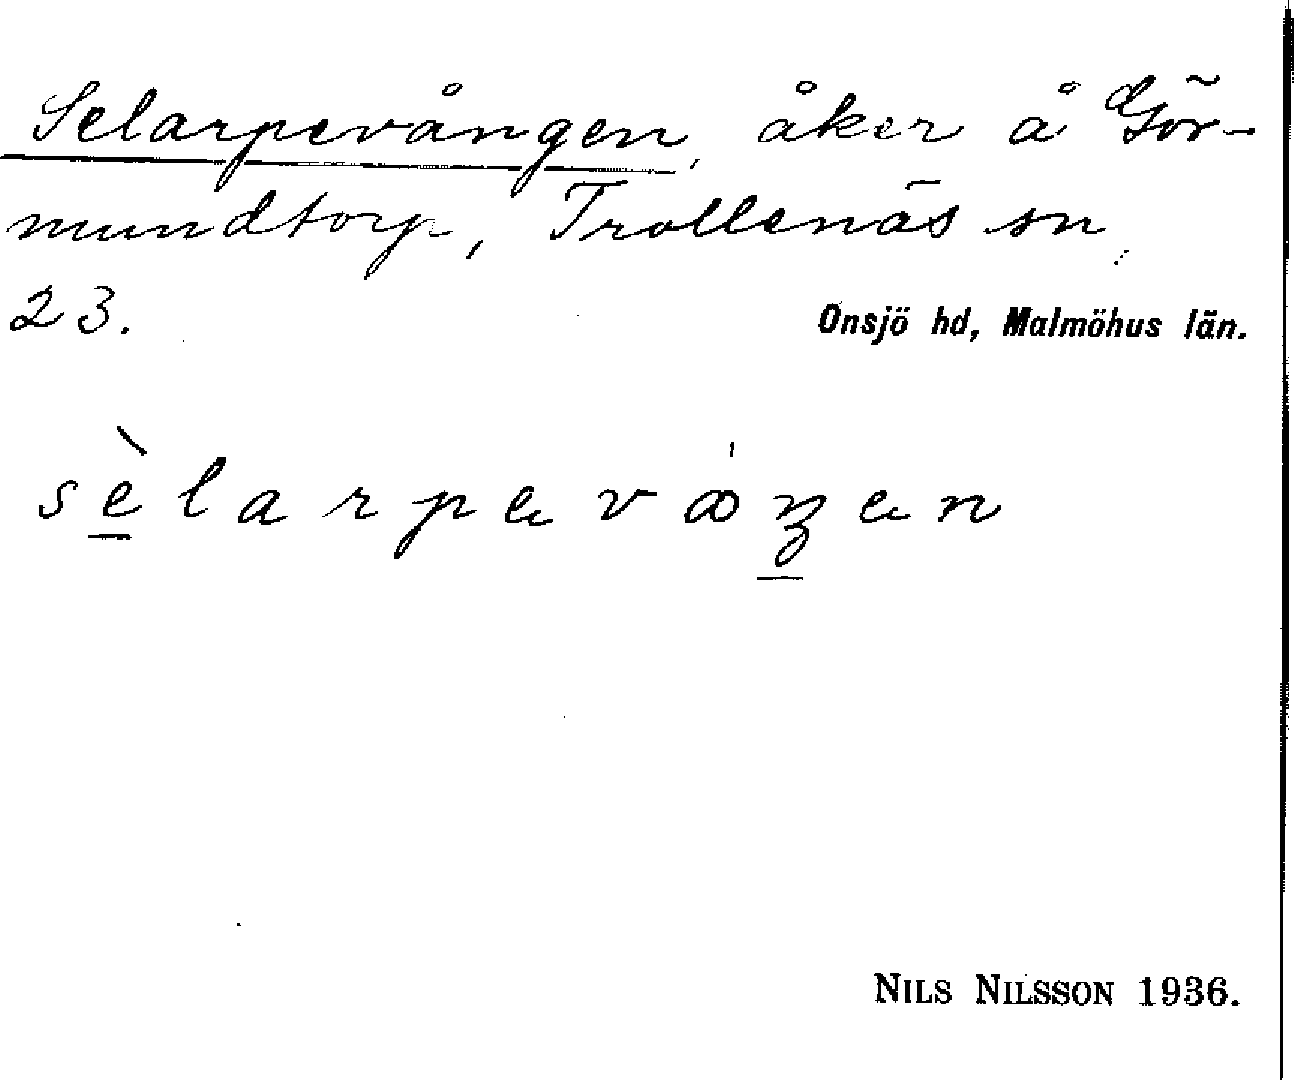 Selarpevången, åker å Gör-
mundtorp, Trollenäs sn,
23.
Onsjö hd, Malmöhus län.
sèlarpevåŋen
NILS NILSSON 1936.